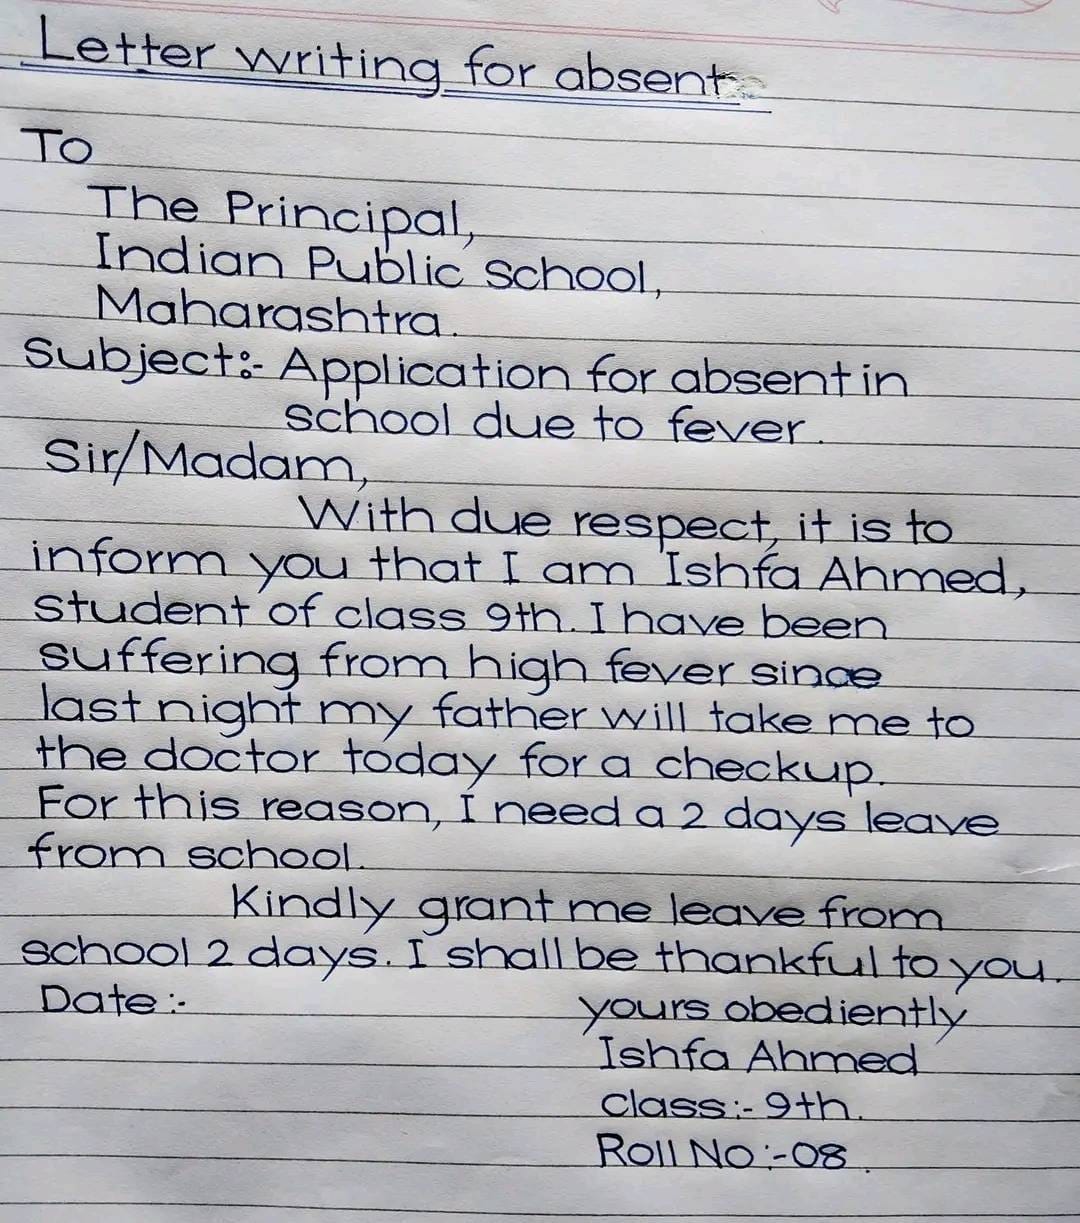 Letter writing for absent
To
The Principal,
Indian Public School,
Maharashtra.
Subject:- Application for absent in
school due to fever.
Sir/Madam,
With due respect, it is to
inform you that I am Ishfa Ahmed,
student of class 9th. I have been
suffering from high fever since
last night my father will take me to
the doctor today for a checkup.
For this reason, I need a 2 days leave
from school.
Kindly grant me leave from
school 2 days. I shall be thankful to you.
Date:-
yours obediently
Ishfa Ahmed
Class:- 9th.
Roll No:-08.